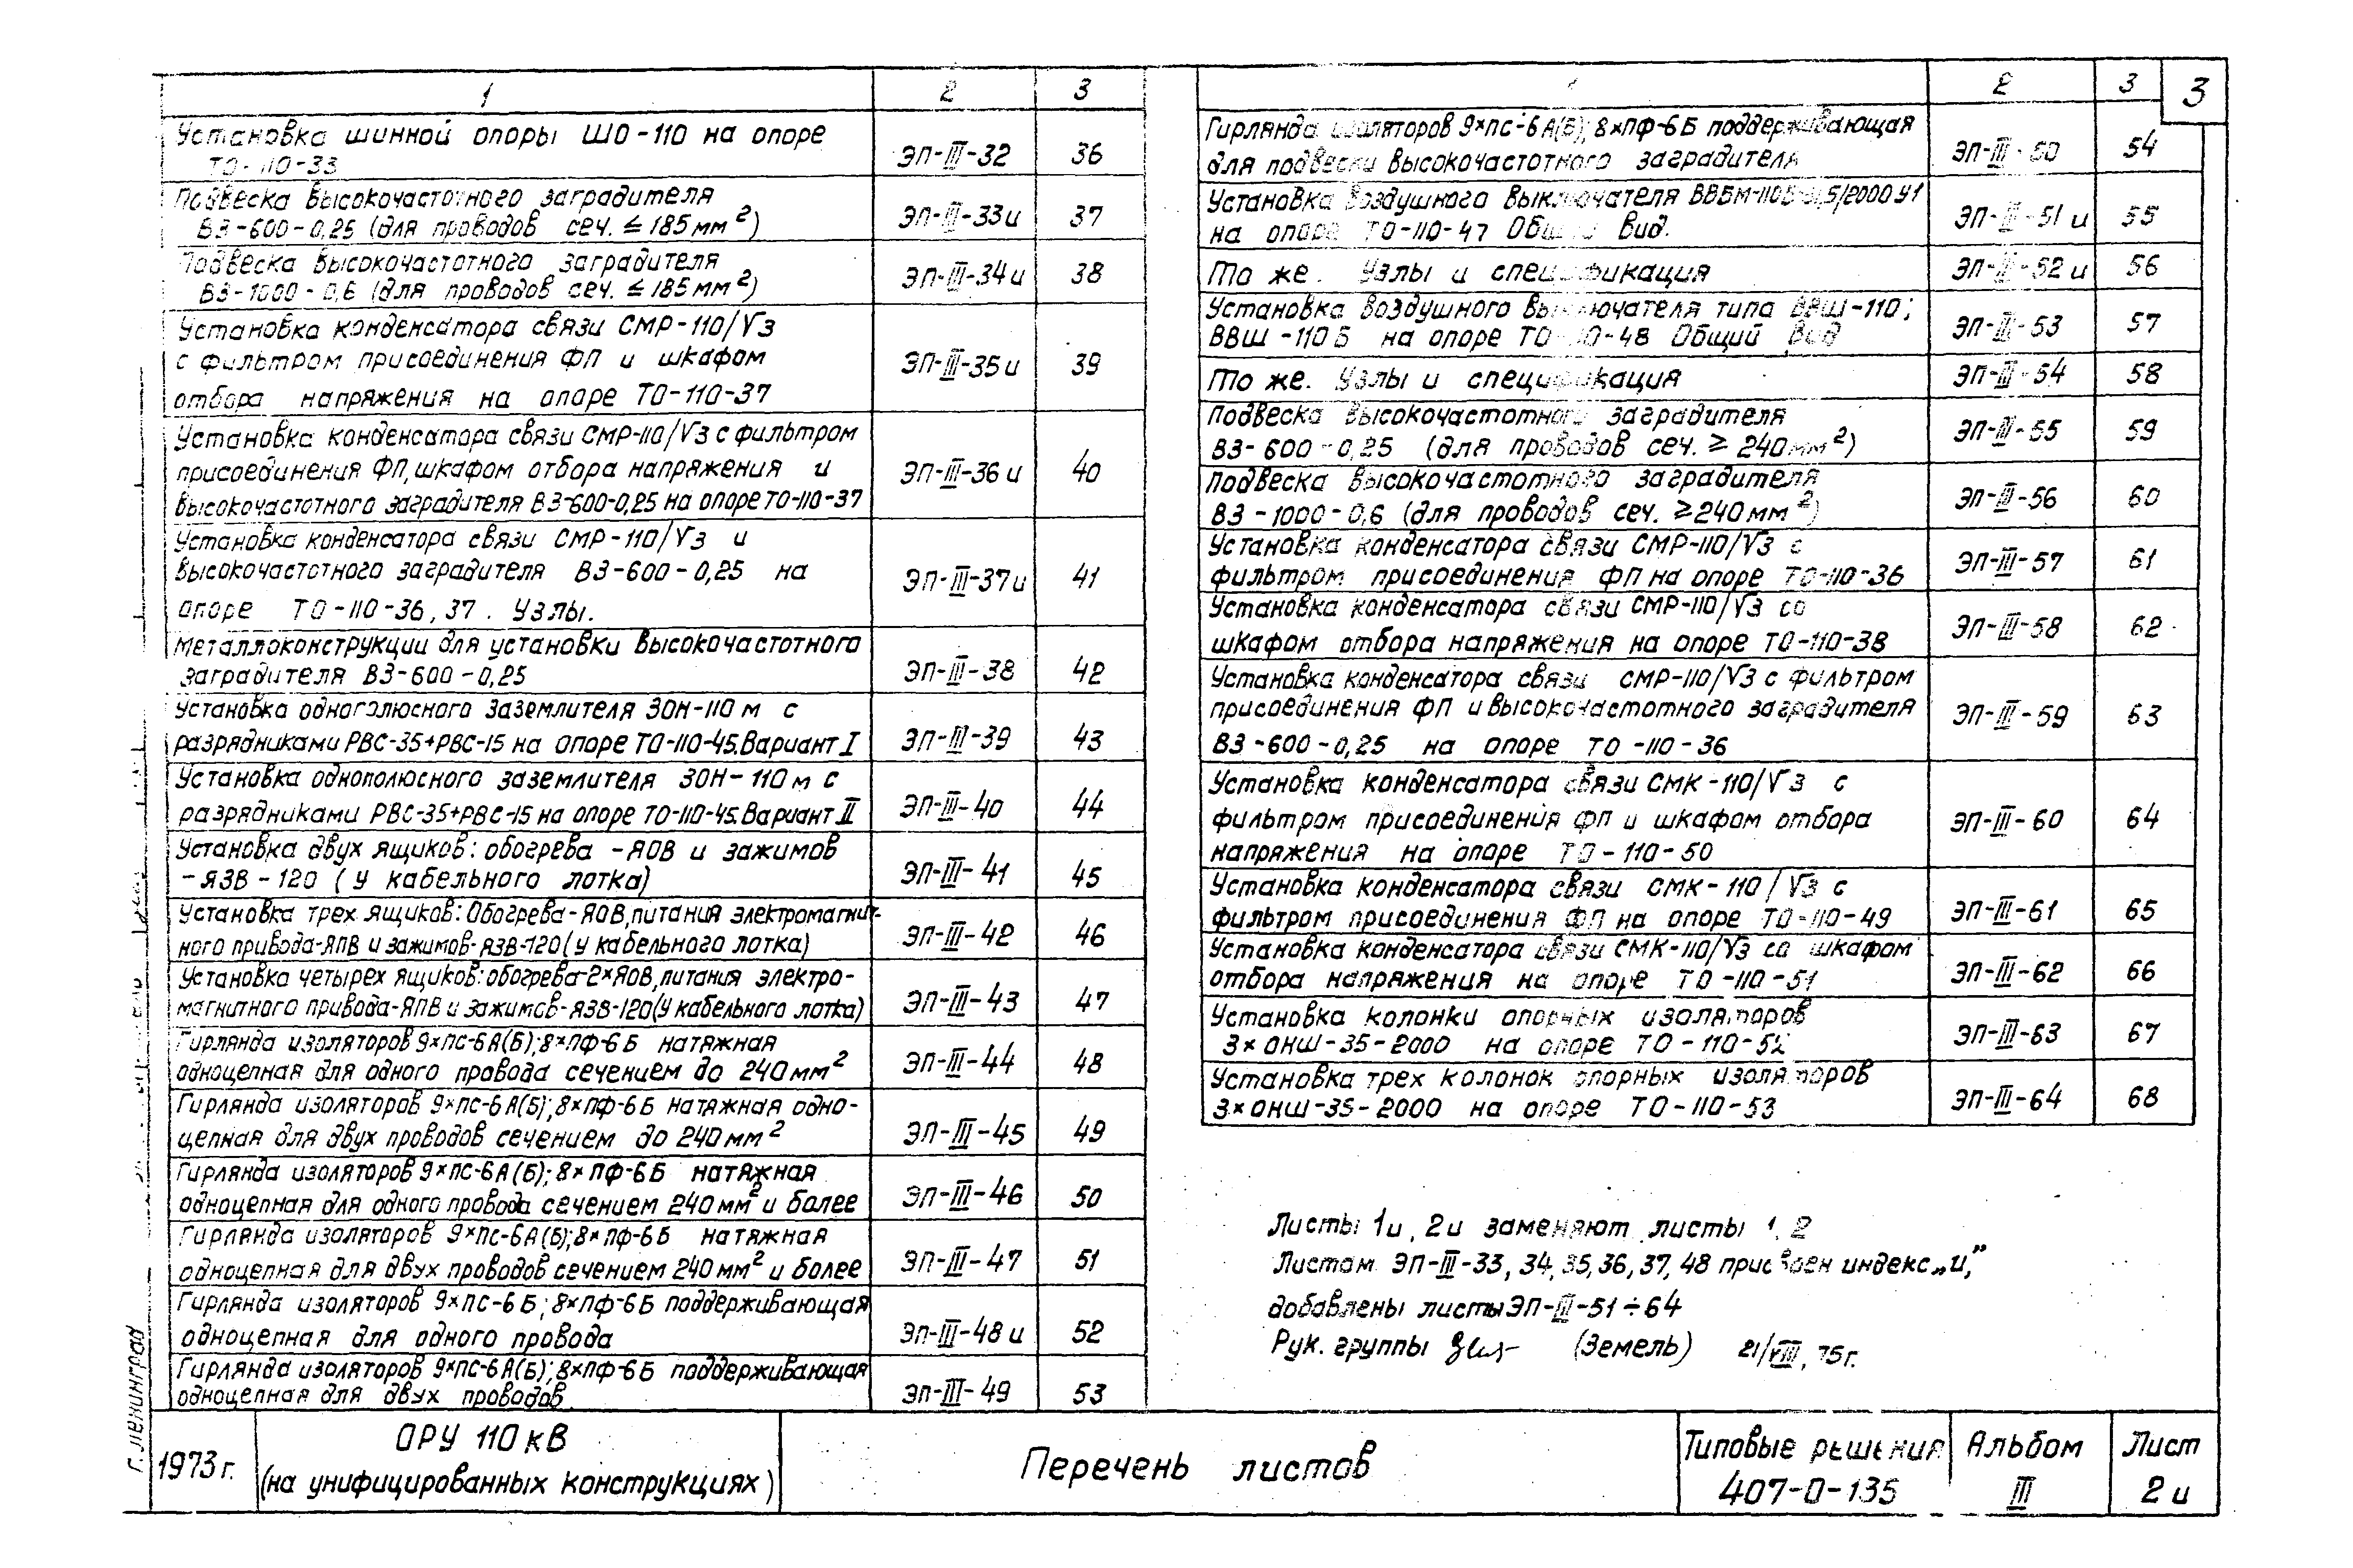 1 2 3
Установка шинной опоры ШО-110 на опоре
ТО-110-33 ЭП-III-32 36
Подвеска высокочастотного заградителя
ВЗ-600-0,25 (для проводов сеч. ≤ 185 мм²) ЭП-III-33и 37
Подвеска высокочастотного заградителя
ВЗ-1000-0,6 (для проводов сеч. ≤ 185 мм²) ЭП-III-34и 38
Установка конденсатора связи СМР-110/√3
с фильтром присоединения ФП и шкафом ЭП-III-35и 39
отбора напряжения на опоре ТО-110-37
Установка конденсатора связи СМР-110/√3 с фильтром
присоединения ФП, шкафом отбора напряжения и ЭП-III-36и 40
высокочастотного заградителя ВЗ-600-0,25 на опоре ТО-110-37
Установка конденсатора связи СМР-110/√3 и
высокочастотного заградителя ВЗ-600-0,25 на ЭП-III-37и 41
опоре ТО-110-36, 37. Узлы.
Металлоконструкции для установки высокочастотного
заградителя ВЗ-600-0,25 ЭП-III-38 42
Установка однополюсного заземлителя ЗОН-110м с
разрядниками РВС-35+РВС-15 на опоре ТО-110-45. Вариант I ЭП-III-39 43
Установка однополюсного заземлителя ЗОН-110м с
разрядниками РВС-35+РВС-15 на опоре ТО-110-45. Вариант II ЭП-III-40 44
Установка двух ящиков: обогрева -ЯОВ и зажимов
-ЯЗВ-120 (у кабельного лотка) ЭП-III-41 45
Установка трех ящиков: Обогрева-ЯОВ, питания электромагнит-
ного привода-ЯПВ и зажимов-ЯЗВ-120 (у кабельного лотка) ЭП-III-42 46
Установка четырех ящиков: обогрева-2×ЯОВ, питания электро-
магнитного привода-ЯПВ и зажимов-ЯЗВ-120 (у кабельного лотка) ЭП-III-43 47
Гирлянда изоляторов 9×ПС-6А(Б); 8×ПФ-6Б натяжная
одноцепная для одного провода сечением до 240 мм² ЭП-III-44 48
Гирлянда изоляторов 9×ПС-6А(Б); 8×ПФ-6Б натяжная одно-
цепная для двух проводов сечением до 240 мм² ЭП-III-45 49
Гирлянда изоляторов 9×ПС-6А(Б); 8×ПФ-6Б натяжная
одноцепная для одного провода сечением 240 мм² и более ЭП-III-46 50
Гирлянда изоляторов 9×ПС-6А(Б); 8×ПФ-6Б натяжная
одноцепная для двух проводов сечением 240 мм² и более ЭП-III-47 51
Гирлянда изоляторов 9×ПС-6Б; 8×ПФ-6Б поддерживающая
одноцепная для одного провода ЭП-III-48и 52
Гирлянда изоляторов 9×ПС-6А(Б); 8×ПФ-6Б поддерживающая
одноцепная для двух проводов ЭП-III-49 53
1 2 3 3
Гирлянда изоляторов 9×ПС-6А(Б); 8×ПФ-6Б поддерживающая
для подвески высокочастотного заградителя ЭП-III-50 54
Установка воздушного выключателя ВВБМ-110Б-31,5/2000 У1
на опоре ТО-110-47 Общий вид. ЭП-III-51и 55
То же. Узлы и спецификация ЭП-III-52и 56
Установка воздушного выключателя типа ВВШ-110;
ВВШ-110Б на опоре ТО-110-48 Общий вид ЭП-III-53 57
То же. Узлы и спецификация ЭП-III-54 58
Подвеска высокочастотного заградителя
ВЗ-600-0,25 (для проводов сеч. ≥ 240 мм²) ЭП-III-55 59
Подвеска высокочастотного заградителя
ВЗ-1000-0,6 (для проводов сеч. ≥ 240 мм²) ЭП-III-56 60
Установка конденсатора связи СМР-110/√3 с
фильтром присоединения ФП на опоре ТО-110-36 ЭП-III-57 61
Установка конденсатора связи СМР-110/√3 со
шкафом отбора напряжения на опоре ТО-110-38 ЭП-III-58 62
Установка конденсатора связи СМР-110/√3 с фильтром
присоединения ФП и высокочастотного заградителя ЭП-III-59 63
ВЗ-600-0,25 на опоре ТО-110-36
Установка конденсатора связи СМК-110/√3 с
фильтром присоединения ФП и шкафом отбора ЭП-III-60 64
напряжения на опоре ТО-110-50
Установка конденсатора связи СМК-110/√3 с
фильтром присоединения ФП на опоре ТО-110-49 ЭП-III-61 65
Установка конденсатора связи СМК-110/√3 со шкафом
отбора напряжения на опоре ТО-110-51 ЭП-III-62 66
Установка колонки опорных изоляторов
3×ОНШ-35-2000 на опоре ТО-110-52 ЭП-III-63 67
Установка трех колонок опорных изоляторов
3×ОНШ-35-2000 на опоре ТО-110-53 ЭП-III-64 68
Листы 1и, 2и заменяют листы 1, 2
Листам ЭП-III-33, 34, 35, 36, 37, 48 присвоен индекс „и",
добавлены листы ЭП-III-51÷64
Рук. группы (Земель) 21/VIII, 75г.
г. Ленинград
1973г.
ОРУ 110кВ
(на унифицированных конструкциях)
Перечень листов
Типовые решения
407-0-135
Альбом
III
Лист
2и